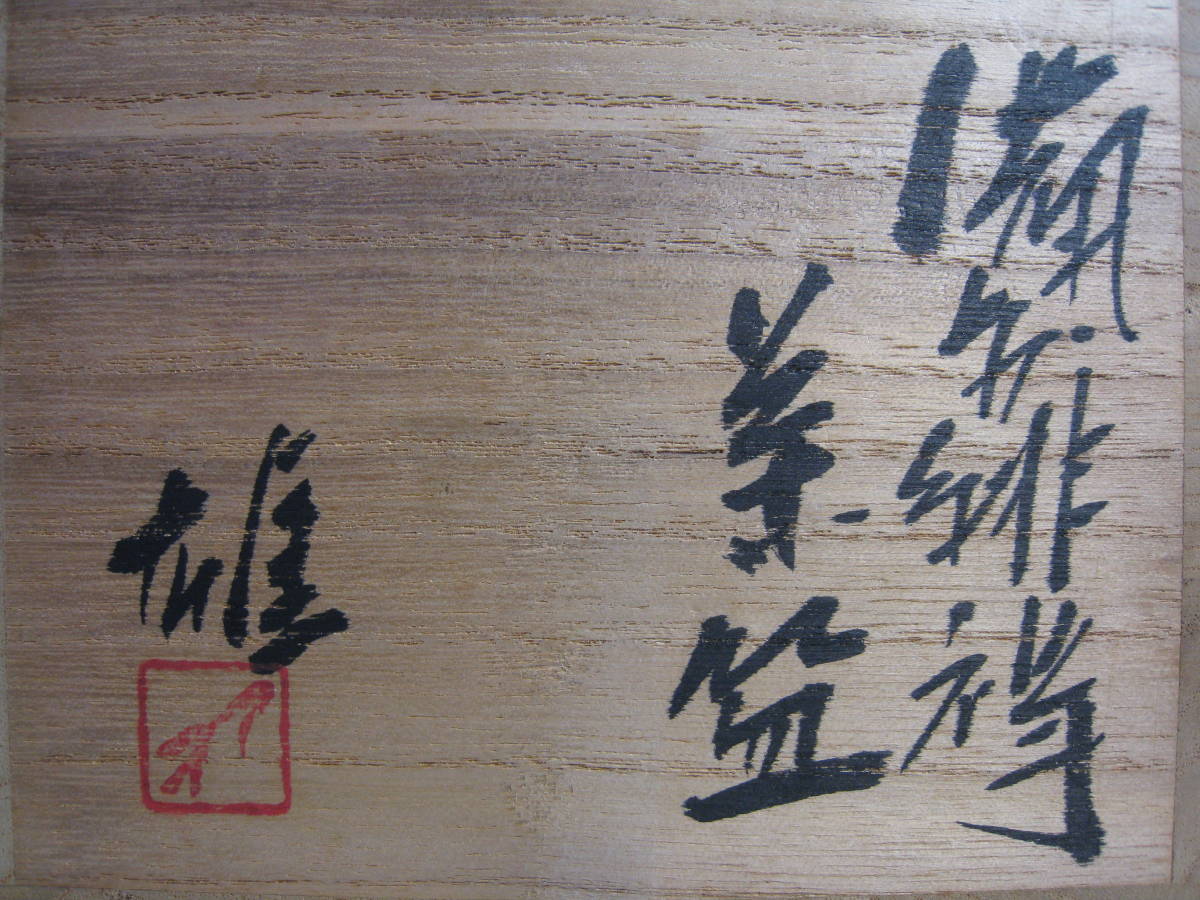 備前緋襷
茶盌
雄